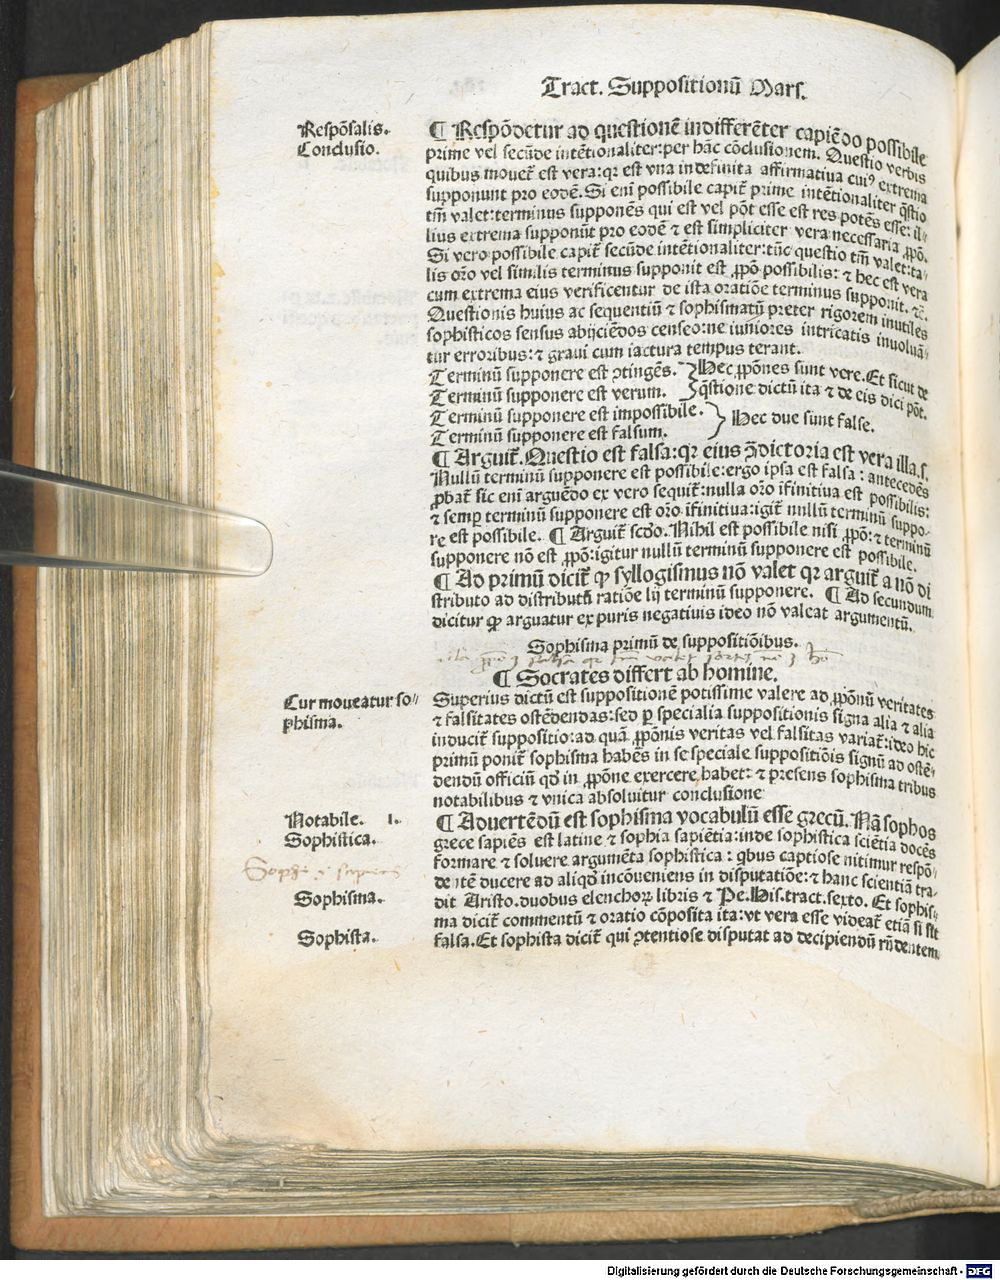 Tract. Suppositionū Mars.
Respōsalis.
Conclusio.
¶ Respōdetur ad questionē indifferēter capiēdo possibile
prime vel secūde intētionaliter: per hāc cōclusionem. Questio verbis
quibus mouet̄ est vera: qꝛ est vna indefinita affirmatiua cuiꝰ extrema
supponunt pro eodē. Si eni possibile capit̄ prime intētionaliter q̄stio
tm̄ valet: terminus supponēs qui est vel pōt esse est res potēs esse: il-
lius extrema supponūt pro eodē ⁊ est simpliciter vera necessaria ꝓpō.
Si vero possibile capit̄ secūde intētionaliter: tūc questio tm̄ valet: ta-
lis oꝛo vel similis terminus supponit est ꝓpō possibilis: ⁊ hec est vera
cum extrema eius verificentur de ista oratiōe terminus supponit. ⁊c̄.
Questionis huius ac sequentiū ⁊ sophismatū preter rigorem inutiles
sophisticos sensus abijciēdos censeo: ne iuniores intricatis inuoluā-
tur erroribus: ⁊ graui cum iactura tempus terant.
Terminū supponere est ꝯtingēs. Hec ꝓpōnes sunt vere. Et sicut de
Terminū supponere est verum. q̄stione dictū ita ⁊ de eis dici pōt.
Terminū supponere est impossibile. Hec due sunt false.
Terminū supponere est falsum.
¶ Arguit̄. Questio est falsa: qꝛ eius ꝯ̄dictoria est vera illa. s.
Nullū terminū supponere est possibile: ergo ipsa est falsa: antecedēs
ꝓbat̄ sic eni arguēdo ex vero sequit̄: nulla oꝛo ifinitiua est possibilis:
⁊ semꝑ terminū supponere est oꝛo ifinitiua: igit̄ nullū terminū suppo-
re est possibile. ¶ Arguit̄ scd̄o. Nihil est possibile nisi ꝓpō: ⁊ terminū
supponere nō est ꝓpō: igitur nullū terminū supponere est possibile.
¶ Ad primū dicit̄ ꝙ syllogismus nō valet qꝛ arguit̄ a nō di
stributo ad distributū ratiōe lij terminū supponere. ¶ Ad secundum
dicitur ꝙ arguatur ex puris negatiuis ideo nō valeat argumentū.
Sophisma primū de suppositiōibus.
¶ Socrates differt ab homine.
Cur moueatur so-
phisma.
Superius dictū est suppositionē potissime valere ad ꝓpōnū veritates
⁊ falsitates ostēdendas: sed ꝑ specialia suppositionis signa alia ⁊ alia
inducit̄ suppositio: ad quā ꝓpōnis veritas vel falsitas variat̄: ideo hic
primū ponit̄ sophisma habēs in se speciale suppositiōis signū ad ostē-
dendū officiū qd̄ in ꝓpōne exercere habet: ⁊ presens sophisma tribus
notabilibus ⁊ vnica absoluitur conclusione
Notabile. 1.
Sophistica.
¶ Aduertēdū est sophisma vocabulū esse grecū. Nā sophos
grece sapiēs est latine ⁊ sophia sapiētia: inde sophistica sciētia docēs
formare ⁊ soluere argumēta sophistica: qbus captiose nitimur respō-
dētē ducere ad aliqd̄ incōueniens in disputatiōe: ⁊ hanc scientiā tra-
Sophisma.
dit Aristo. duobus elenchoꝝ libris ⁊ Pe. His. tract. sexto. Et sophis-
ma dicit̄ commentū ⁊ oratio cōposita ita: vt vera esse videat̄ etiā si sit
Sophista.
falsa. Et sophista dicit̄ qui ꝯtentiose disputat ad decipiendū rn̄dentem
Digitalisierung gefördert durch die Deutsche Forschungsgemeinschaft - DFG